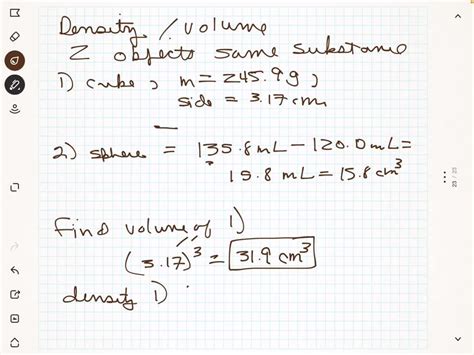 Density / volume
2 objects same substance
1) cube, m = 245.9g,
side = 3.17cm
2) sphere = 135.8mL - 120.0mL =
15.8 mL = 15.8 cm³
Find volume of 1)
(3.17)³ = 31.9 cm³
density 1)
23 / 25